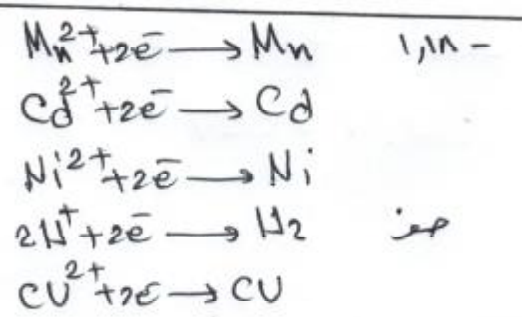 Mn²⁺+2e⁻ → Mn ١,١٨ −
Cd²⁺+2e⁻ → Cd
Ni²⁺+2e⁻ → Ni
2H⁺+2e⁻ → H₂ صفر
CU²⁺+2e⁻ → CU